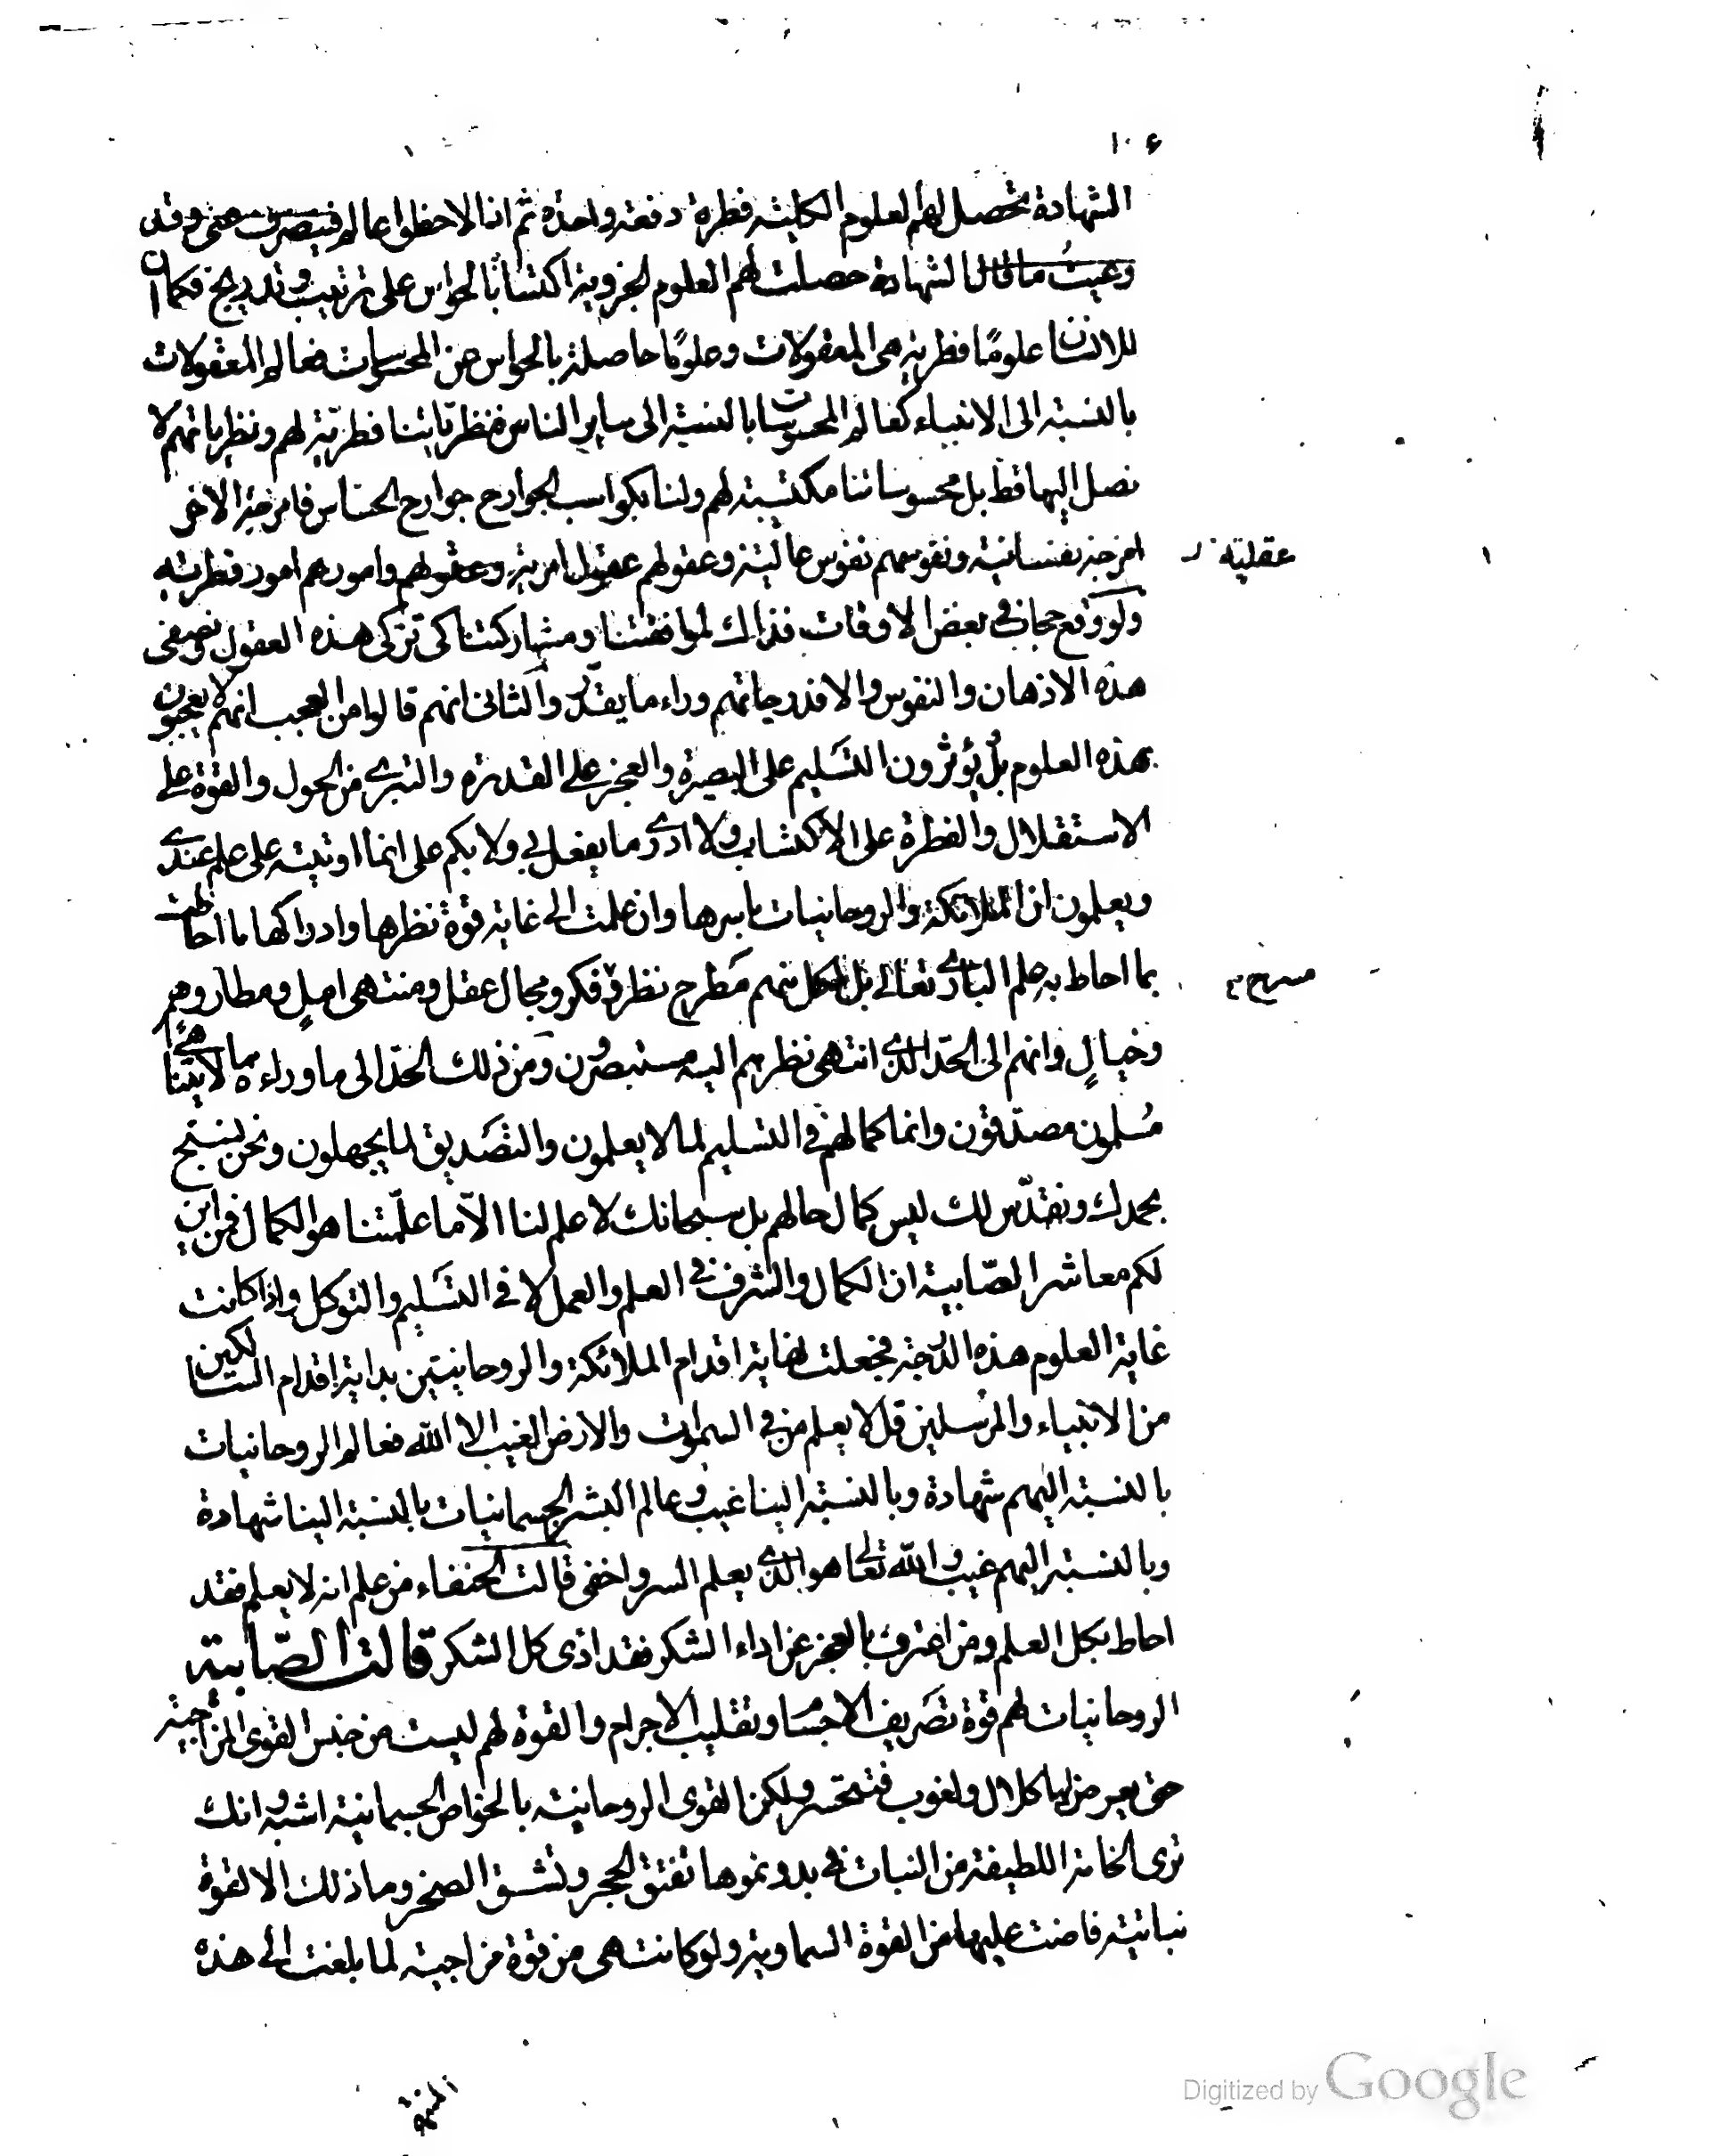 ١٠٤
الشهادة تحصل لهم العلوم الكلية فطرة دفعة واحدة ثم اذا لاحظوا عالم فيتصرف عنى وقد
وعيت ما قال الشهادة حصلت لهم العلوم الجزوية اكتسابًا بالحواس على ترتيب وتدريج فكما ان
للانسان علومًا فطرية هى المعقولات وعلومًا حاصلة بالحواس عن المحسوسات فعالم المعقولات
بالنسبة الى الانبياء كعالم المحسوسات بالنسبة الى ساير الناس فنظريّاتنا فطريّة لهم ونظرياتهم لا
نصل اليها قط بل محسوساتنا مكتسبة لهم ولنا بكواسب الجوارح جوارح الحساس فامزجة الاخر
امزجة نفسانية ونفوسهم نفوس عالية وعقولهم عقول امرية وعقولهم وامورهم امور فطرية
عقلية
ولو وقع حجاب فى بعض الاوقات فذلك لموافقتنا ومشاركتنا كى تزكى هذه العقول وتصفى
هذه الاذهان والنفوس والا فدرجاتهم وراء ما يقدّر والثانى انهم قالوا من العجب انهم لا يعجبون
بهذه العلوم بل يؤثرون التسليم على البصيرة والعجز على القدرة والتبرى من الحول والقوة على
الاستقلال والفطرة على الاكتساب ولا ادرى ما يفعل بى ولا بكم على انما اوتيته على علم عندى
ويعلمون ان الملائكة والروحانيات باسرها وان علمت الى غاية قوة نظرها وادراكها ما احاطت
بما احاط به علم البارى تعالى بل لكل منهم مطرح نظر وفكر ومجال عقل ومنتهى امل ومطار وهم
مسرح
وخيال وانهم الى الحدّ الذى انتهى نظرهم اليه مستبصرون ومن ذلك الحدّ الى ما وراءه مما لا يتناهى
مُسلمون مصدّقون وانما كمالهم فى التسليم لما لا يعلمون والتصديق لما يجهلون ونحن نسبح
بحمدك ونقدّس لك ليس كمال حالهم بل سبحانك لا علم لنا الّا ما علّمتنا هو الكمال فمن اين
لكم معاشر الصّابية ان الكمال والشرف فى العلم والعمل لا فى التسليم والتوكل واذا كانت
غاية العلوم هذه الدّرجة فجعلت نهاية اقدام الملائكة والروحانيين بداية اقدام السالكين
من الانبياء والمرسلين قل لا يعلم من فى السموات والارض الغيب الا الله فعالم الروحانيات
بالنسبة اليهم شهادة وبالنسبة الينا غيب وعالم البشر الجسمانيات بالنسبة الينا شهادة
وبالنسبة اليهم غيب والله تعالى هو الذى يعلم السر واخفى قالت الحنفاء من علم انه لا يعلم فقد
احاط بكل العلم ومن اعترف بالعجز عن اداء الشكر فقد ادّى كل الشكر قالت الصّابية
الروحانيات لهم قوة تصريف الاجسام وتقليب الاجرام والقوة لهم ليست من جنس القوى المزاجية
حتى يعرض لها كلال ولغوب فتنحسر ولكن القوى الروحانية بالخواص الجسمانية اشبه وانك
ترى الخامة اللطيفة من النبات فى بدو نموها تفتق الحجر وتشق الصخر وما ذلك الا لقوة
نباتية فاضت عليها من القوة السماوية ولو كانت هى من قوة مزاجية لما بلغت الى هذه
Digitized by Google